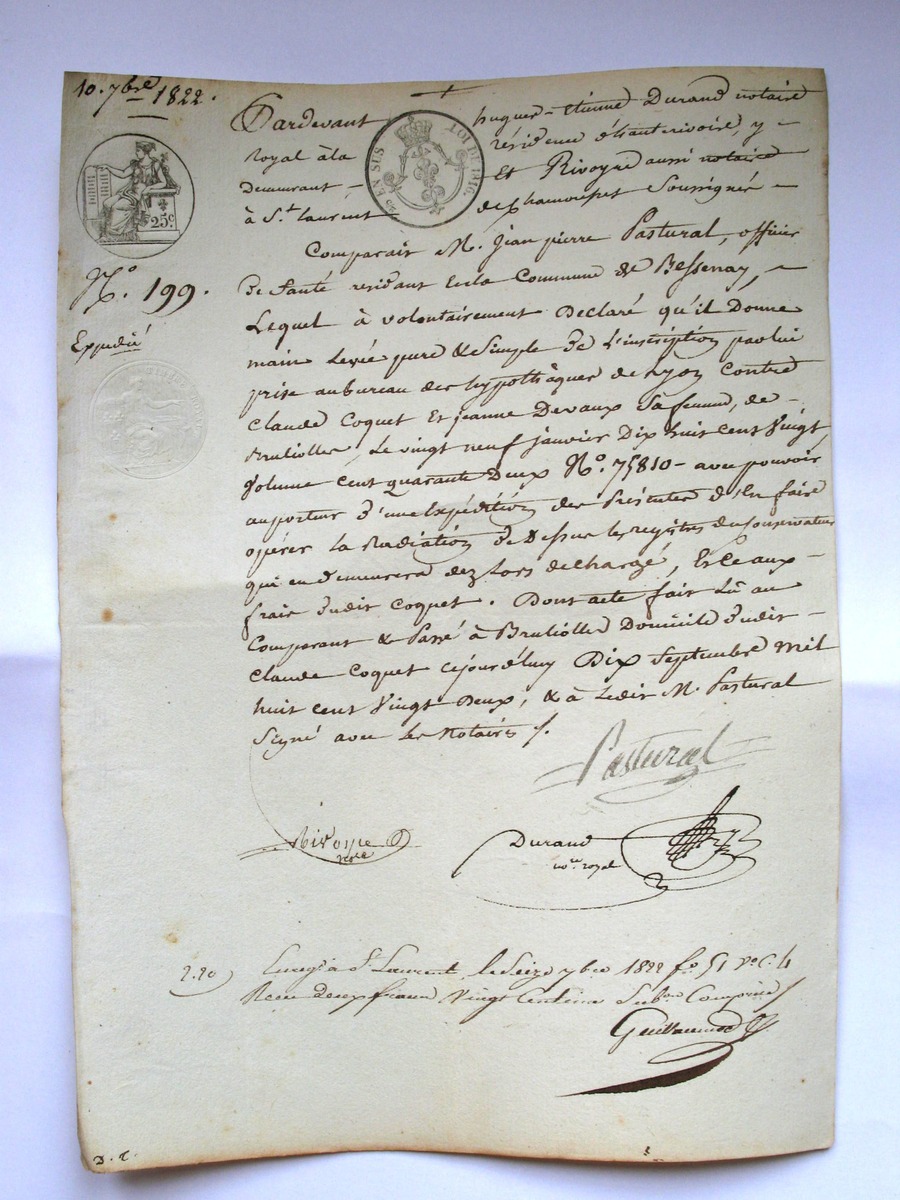 10. 7bre 1822.
Pardevant hugues-Etienne Durand notaire
royal à la résidence d'hauterivoire, y-
Demeurant - Et Rivoyre aussi notaire
à St. laurent de chamousset Soussignés -
EN SUS
LOI DE 1816.
25c.
No. 199.
Expédié
Comparait M. Jean pierre Pastural, officier
De Santé residant En la Commune de Bessenay, -
Lequel à volontairement Déclaré qu'il Donne
main Levée pure & Simple De L'inscription par lui
prise au bureau des hypothèques de Lyon Contre
Claude Coquet Et jeanne Devaux Sa femme, de -
Brullioles, Le vingt neuf janvier Dix huit Cent Vingt,
Volume Cent quarante Deux No. 75810 - avec pouvoir
au porteur D'une Expédition des Présentes d'En faire
opérer La Radiation De Dessus les registres du Conservateur
qui en Demeurera dez Lors déchargé, Et Ce aux -
frais dudit Coquet. Dont acte fait Lû au
Comparant & Passé à Brullioles Domicile dudit -
Claude Coquet cejourd'huy Dix Septembre mil
huit cent Vingt Deux, & à Ledit M. Pastural
Signé avec Les Notaires ./.
Pastural
Rivoyre
nore
Durand
nore royal
2.20 Enregé à St Laurent, le Seize 7bre 1822 fo. 51 Vo C. 4
Recu deux francs Vingt Centimes Subon Comprise
Guillaumod